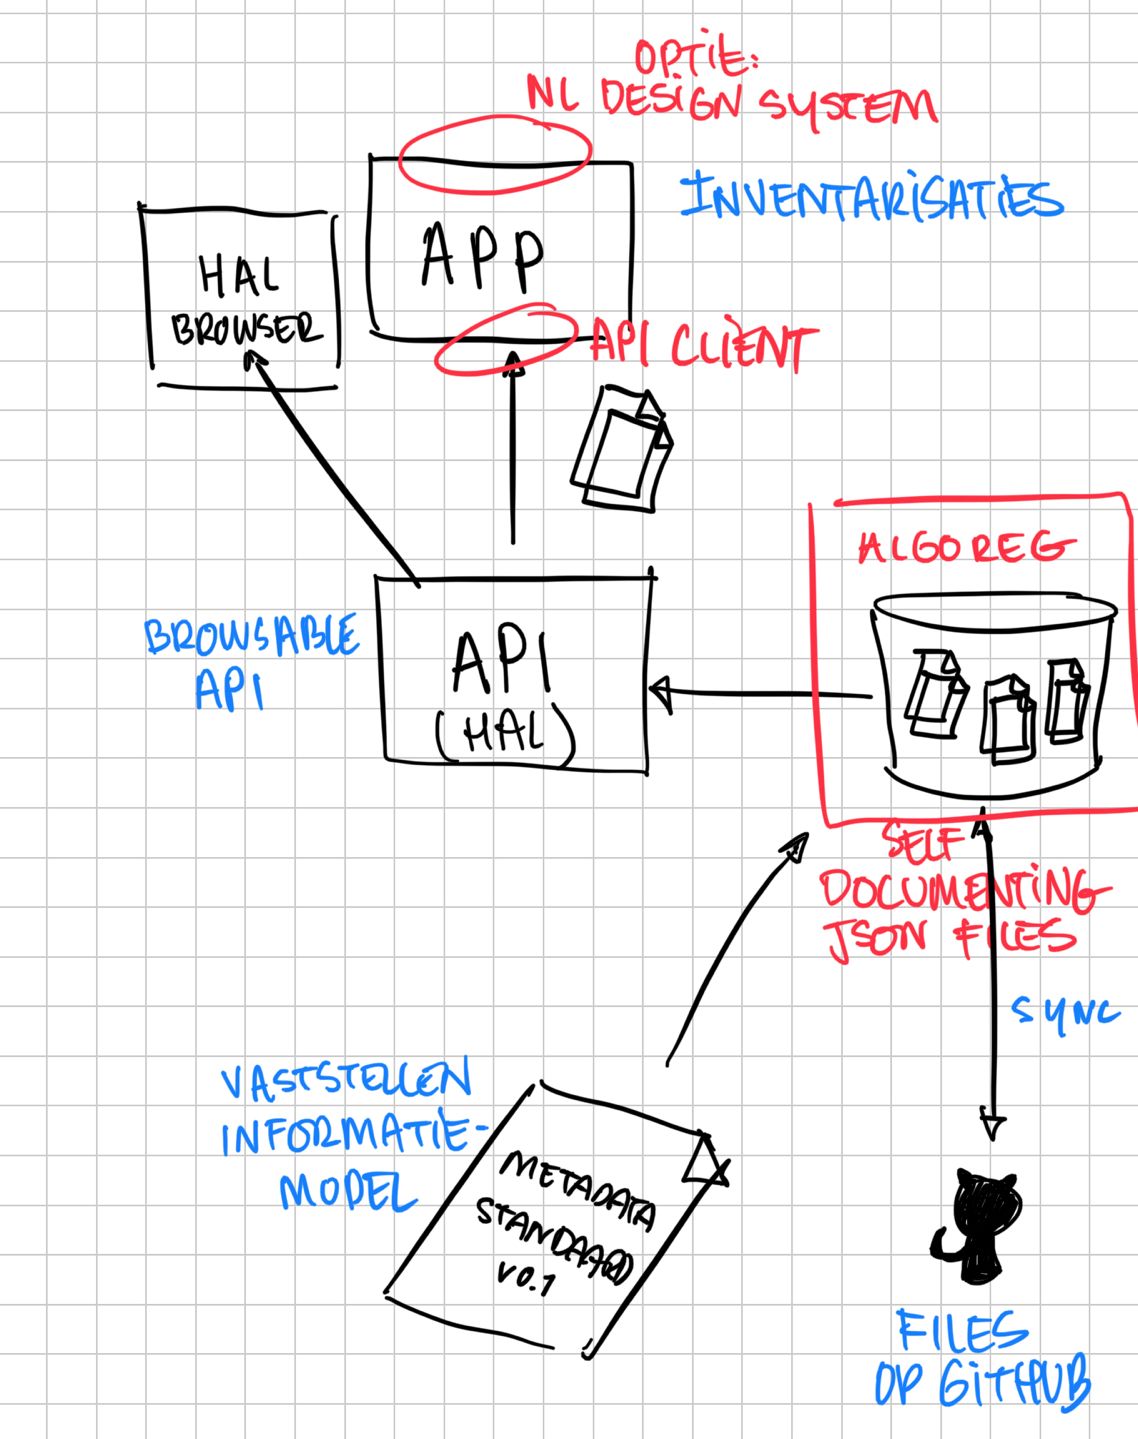 OPTIE:
NL DESIGN SYSTEM
INVENTARISATIES
APP
HAL
BROWSER
API CLIENT
ALGOREG
BROWSABLE
API
API
(HAL)
SELF
DOCUMENTING
JSON FILES
SYNC
VASTSTELLEN
INFORMATIE-
MODEL
METADATA
STANDAARD
V0.1
FILES
OP GITHUB